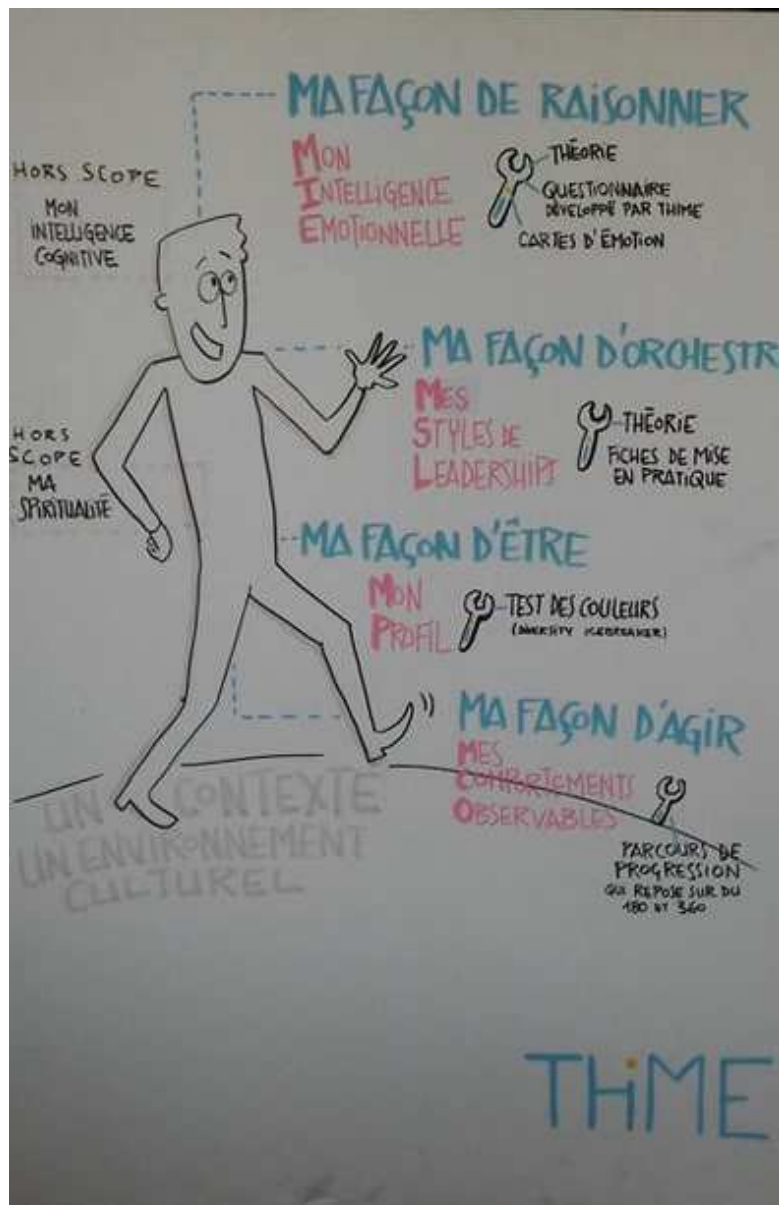 MA FAÇON DE RAISONNER
MON
INTELLIGENCE
ÉMOTIONNELLE
THÉORIE
QUESTIONNAIRE
DÉVELOPPÉ PAR THIME
CARTES D'ÉMOTION
HORS SCOPE
MON
INTELLIGENCE
COGNITIVE
MA FAÇON D'ORCHESTR
MES
STYLES DE
LEADERSHIPS
THÉORIE
FICHES DE MISE
EN PRATIQUE
HORS
SCOPE
MA
SPIRITUALITÉ
MA FAÇON D'ÊTRE
MON
PROFIL
TEST DES COULEURS
(DIVERSITY ICEBREAKER)
MA FAÇON D'AGIR
MES
COMPORTEMENTS
OBSERVABLES
PARCOURS DE
PROGRESSION
QUI REPOSE SUR DU
180 ET 360
UN CONTEXTE
UN ENVIRONNEMENT
CULTUREL
THiME